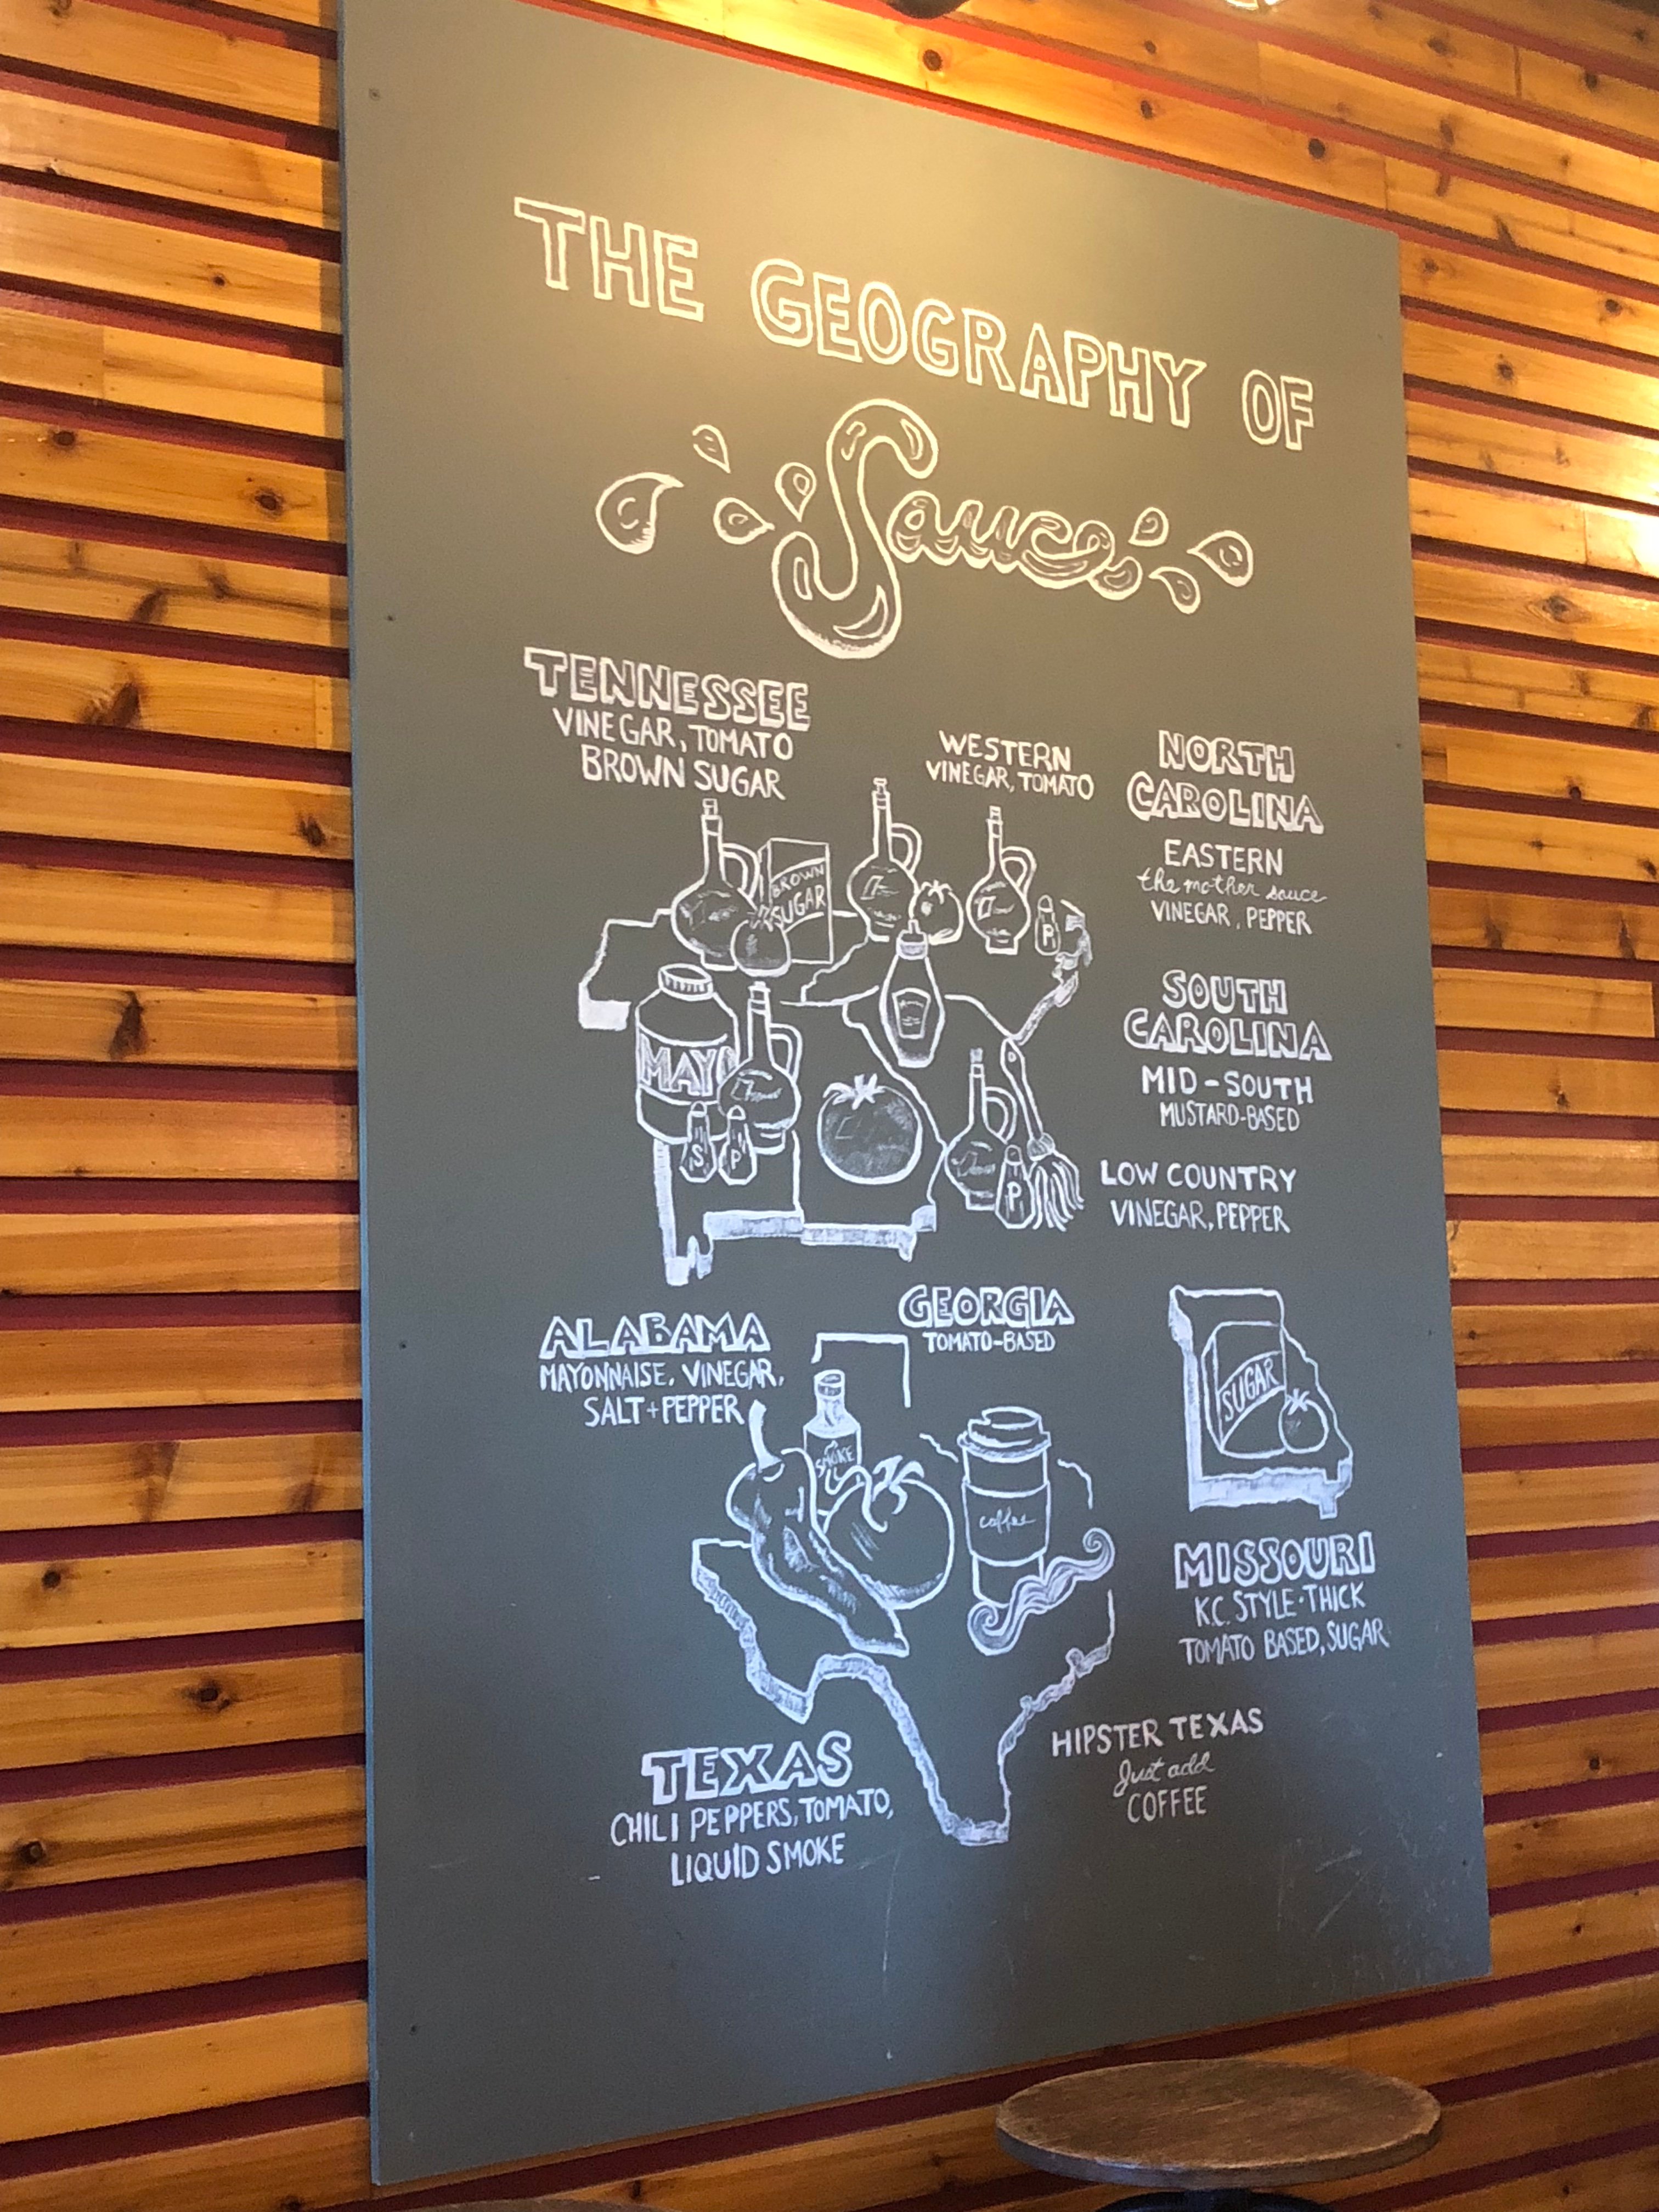 THE GEOGRAPHY OF
Sauce
TENNESSEE
VINEGAR, TOMATO
BROWN SUGAR
WESTERN
VINEGAR, TOMATO
NORTH
CAROLINA
EASTERN
the mother sauce
VINEGAR, PEPPER
BROWN
SUGAR
P
SOUTH
CAROLINA
MID-SOUTH
MUSTARD-BASED
LOW COUNTRY
VINEGAR, PEPPER
MAYO
S
P
P
ALABAMA
MAYONNAISE, VINEGAR,
SALT + PEPPER
GEORGIA
TOMATO-BASED
SUGAR
SMOKE
coffee
MISSOURI
K.C. STYLE · THICK
TOMATO BASED, SUGAR
TEXAS
CHILI PEPPERS, TOMATO,
LIQUID SMOKE
HIPSTER TEXAS
Just add
COFFEE